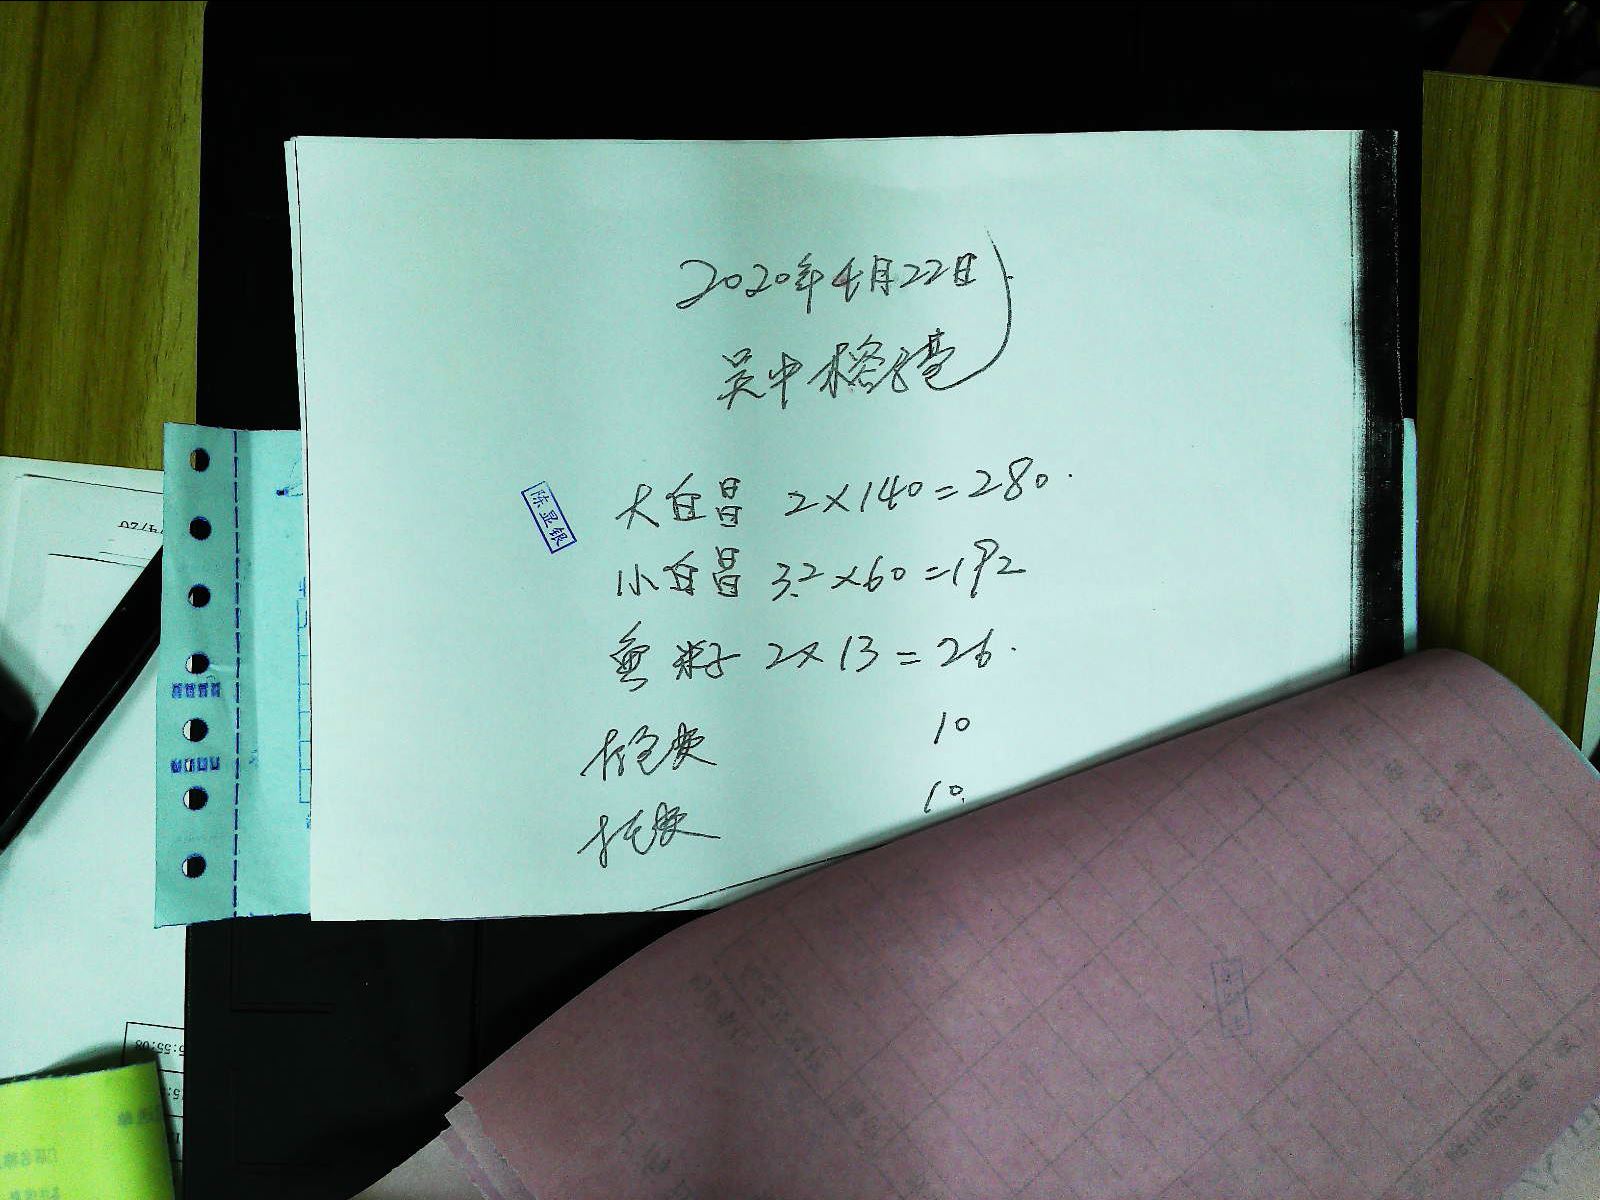 2020年4月22日
吴中榕亭
陈显银
大白昌 2×140=280.
小白昌 3.2×60=192
鱼籽 2×13=26.
打包费 10
托费 10.
5:55:08